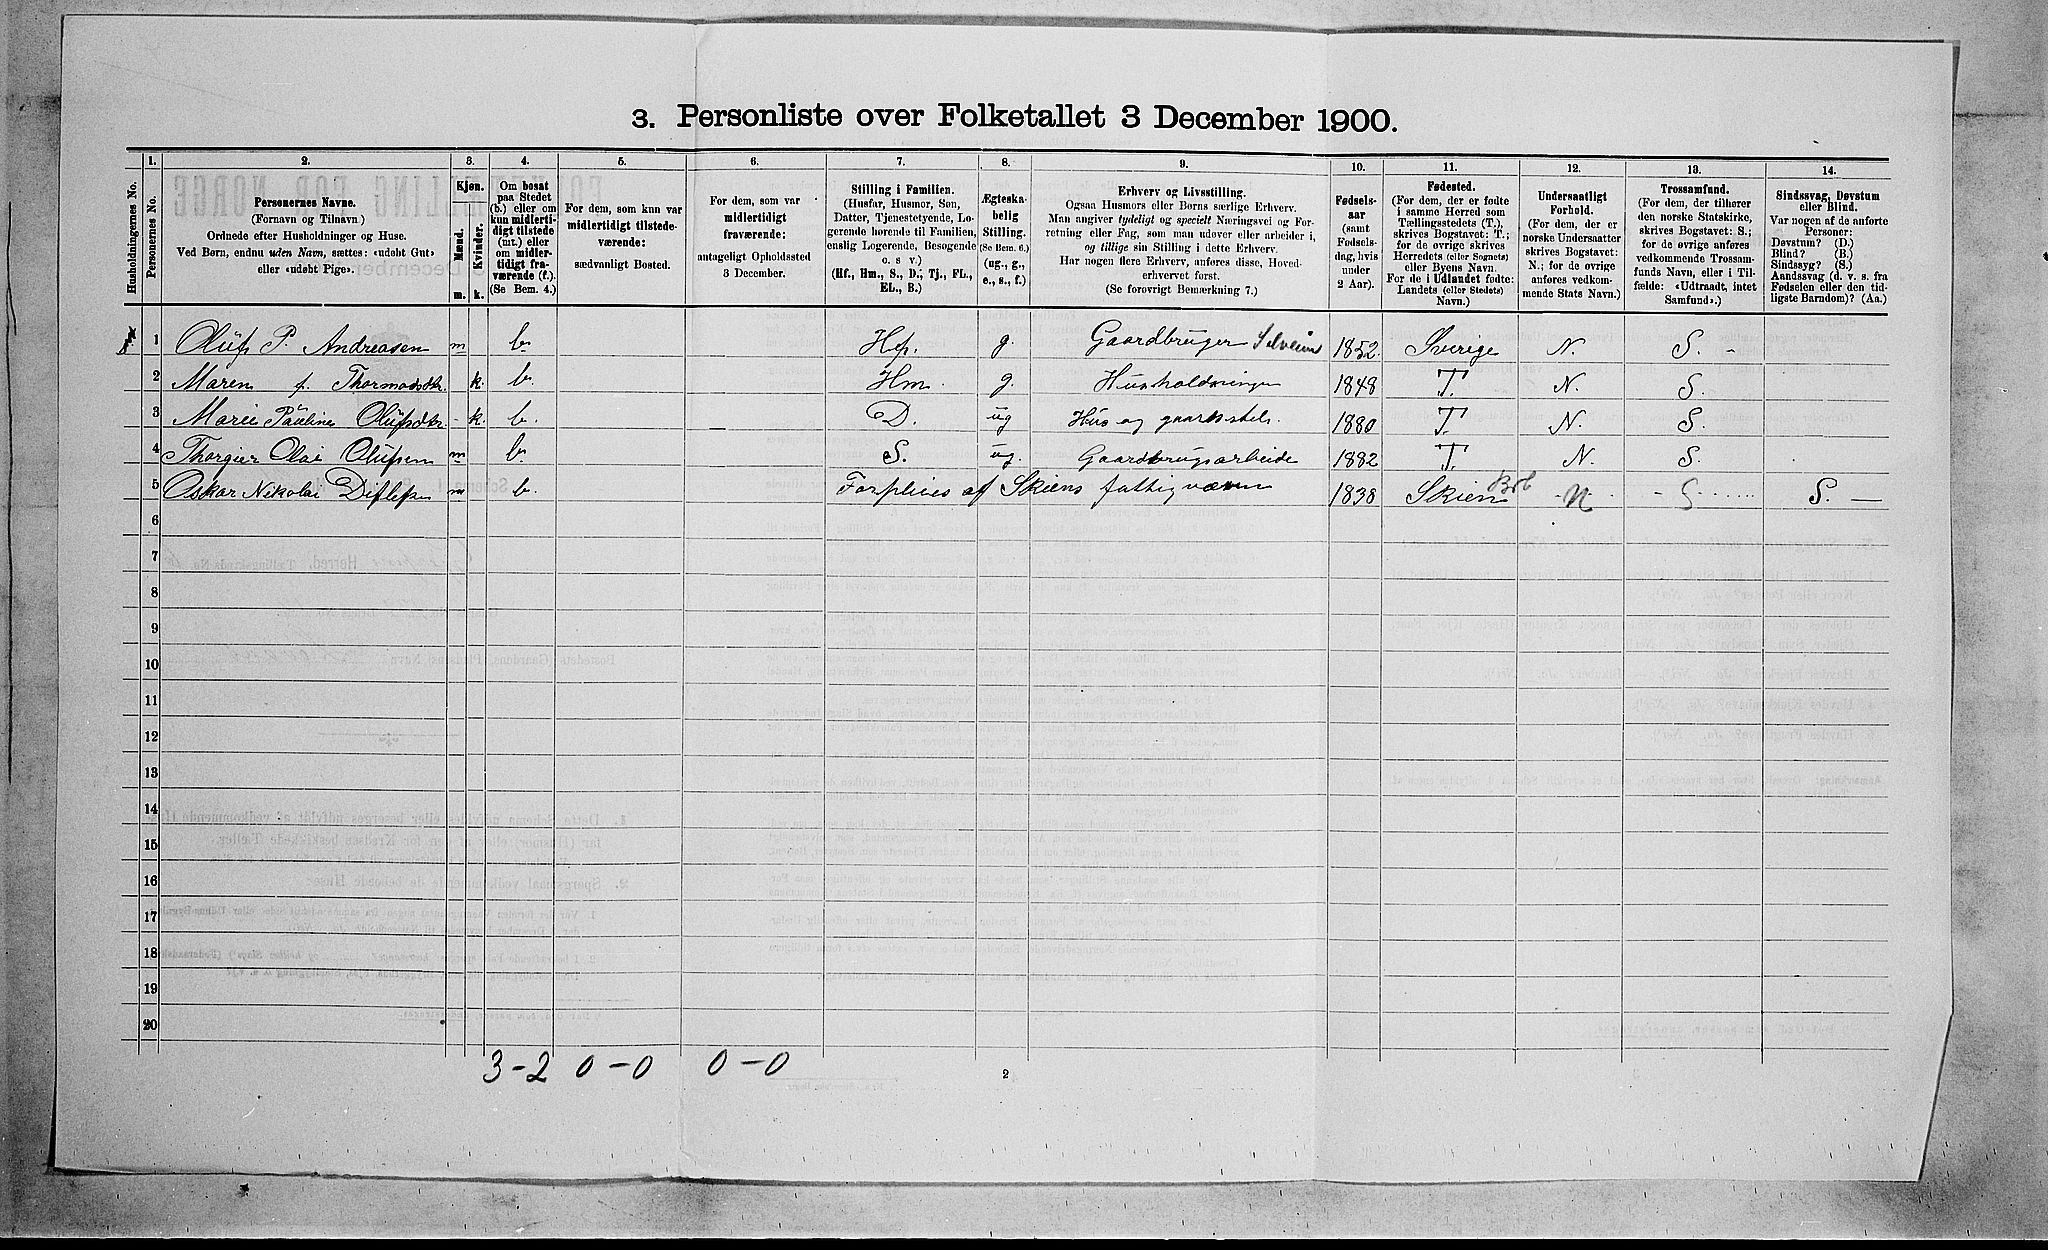 3. Personliste over Folketallet 3 December 1900.
1. 2. 3. 4. 5. 6. 7. 8. 9. 10. 11. 12. 13. 14.
Husholdningernes No.
Personernes No.
Personernes Navne.
(Fornavn og Tilnavn.)
Ordnede efter Husholdninger og Huse.
Ved Børn, endnu uden Navn, sættes: «udøbt Gut»
eller «udøbt Pige».
Kjøn.
Mænd.
m.
Kvinder.
k.
Om bosat
paa Stedet
(b.) eller om
kun midlerti-
digt tilstede
(mt.) eller
om midler-
tidigt fra-
værende (f.).
(Se Bem. 4.)
For dem, som kun var
midlertidigt tilstede-
værende:
sædvanligt Bosted.
For dem, som var
midlertidigt
fraværende:
antageligt Opholdssted
3 December.
Stilling i Familien.
(Husfar, Husmor, Søn,
Datter, Tjenestetyende, Lo-
gerende hørende til Familien,
enslig Logerende, Besøgende
o. s v.)
(Hf., Hm., S., D., Tj., FL.,
EL., B.)
Ægteska-
belig
Stilling.
(Se Bem. 6.)
(ug., g.,
e., s., f.)
Erhverv og Livsstilling.
Ogsaa Husmors eller Børns særlige Erhverv.
Man angiver tydeligt og specielt Næringsvei og For-
retning eller Fag, som man udøver eller arbeider i,
og tillige sin Stilling i dette Erhverv.
Har nogen flere Erhverv, anføres disse, Hoved-
erhvervet først.
(Se forøvrigt Bemærkning 7.)
Fødsels-
aar
(samt
Fødsels-
dag, hvis
under
2 Aar).
Fødested.
(For dem, der er fødte
i samme Herred som
Tællingsstedets (T.),
skrives Bogstavet: T.;
for de øvrige skrives
Herredets (eller Sognets)
eller Byens Navn.
For de i Udlandet fødte:
Landets (eller Stedets)
Navn.)
Undersaatligt
Forhold.
(For dem, der er
norske Undersaatter
skrives Bogstavet:
N.; for de øvrige
anføres vedkom-
mende Stats Navn.)
Trossamfund.
(For dem, der tilhører
den norske Statskirke,
skrives Bogstavet: S.;
for de øvrige anføres
vedkommende Trossam-
funds Navn, eller i Til-
fælde: «Udtraadt, intet
Samfund».)
Sindssvag, Døvstum
eller Blind.
Var nogen af de anførte
Personer:
Døvstum? (D.)
Blind? (B.)
Sindssyg? (S.)
Aandssvag (d. v. s. fra
Fødselen eller den tid-
ligste Barndom)? (Aa.)
1 Oluf P. Andreasen m b. Hf. g. Gaardbruger Selveier 1852. Sverige N. S. -
2 Maren f. Thormodsdtr. k. b. Hm. g. Husholdningen 1848 T. N. S.
3 Marie Pauline Olufsdtr. - k. b. D. ug Hus og gaardsstel. 1880 T. N. S.
4 Thorgier Olai Olufsen m b. S. ug. Gaardbrugsarbeide 1882 T. N. S.
5 Oskar Nikolai Ditlefsen m b. Forpleies af Skiens fattigvæsen 1838 Skien N S S. —
6
7
8
9
10
11
12
13
14
15
16
17
18
19
20
3-2 0-0 0-0
2